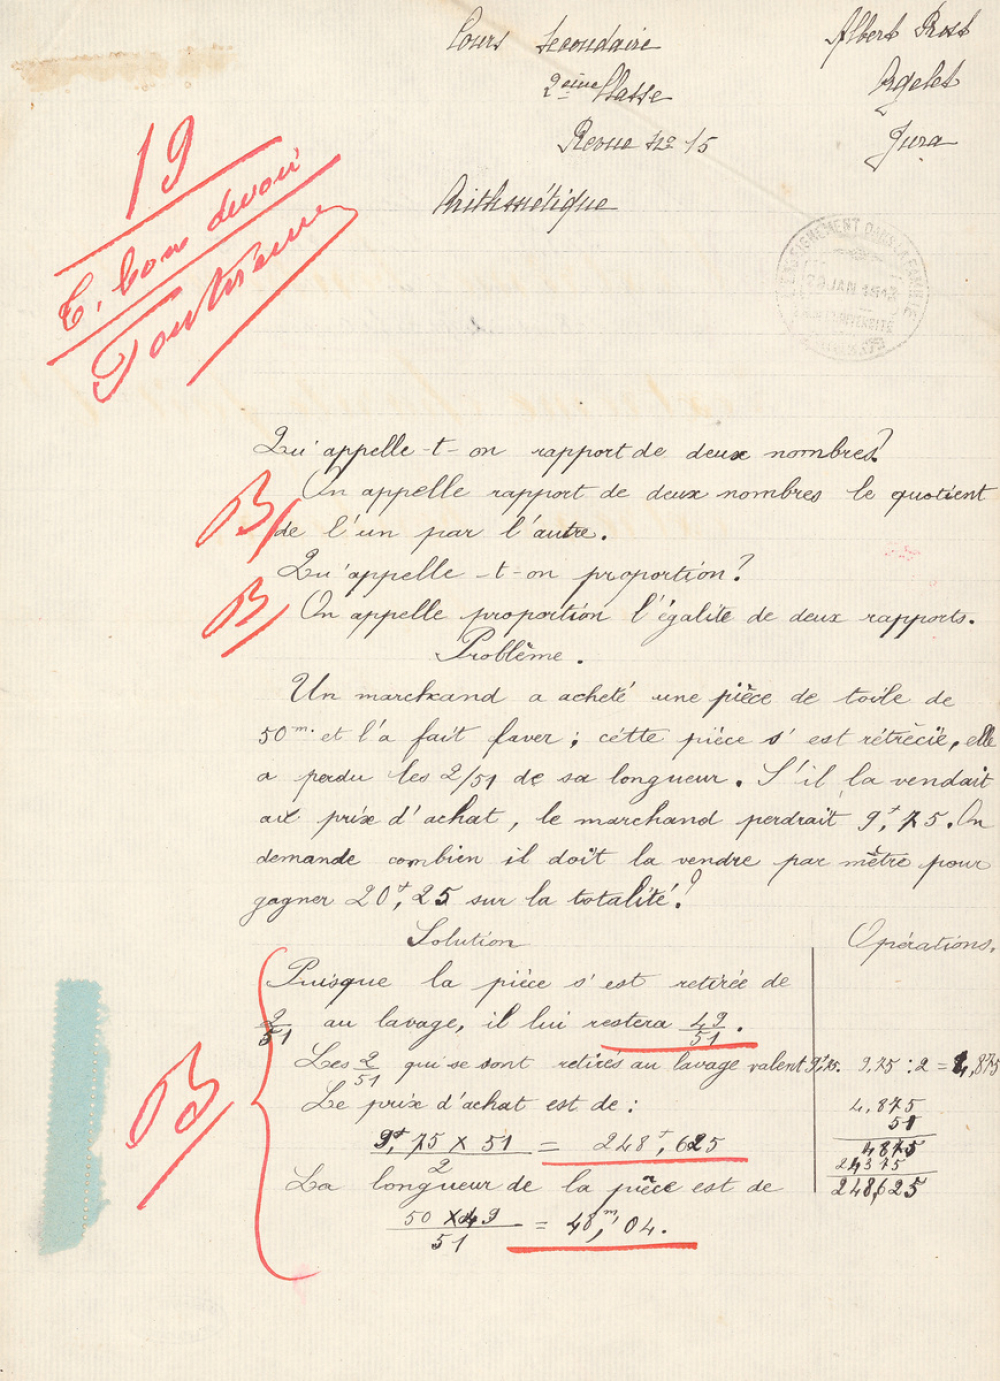 Cours Secondaire
Albert Prost
2ème Classe
Argelet
Revue No 15
Jura
Arithmétique
19
T. bon devoir
ENSEIGNEMENT DANS LA FAMILLE
JAN
UNIVERSITÉ
Qu'appelle-t-on rapport de deux nombres?
B On appelle rapport de deux nombres le quotient
de l'un par l'autre.
Qu'appelle-t-on proportion?
B On appelle proportion l'égalité de deux rapports.
Problème.
Un marchand a acheté une pièce de toile de
50m. et l'a fait laver; cette pièce s'est rétrécie, elle
a perdu les 2/51 de sa longueur. S'il la vendait
au prix d'achat, le marchand perdrait 9f,75. On
demande combien il doit la vendre par mètre pour
gagner 20f,25 sur la totalité?
Solution
Opérations.
Puisque la pièce s'est retirée de
2/51 au lavage, il lui restera 49/51.
Les 2/51 qui se sont retirés au lavage valent 9f,75. 9,75 : 2 = 4,875
B
Le prix d'achat est de:
9f,75 x 51 / 2 = 248f,625
4,875
51
4875
24375
248,625
La longueur de la pièce est de
50 x 49 / 51 = 48m,04.